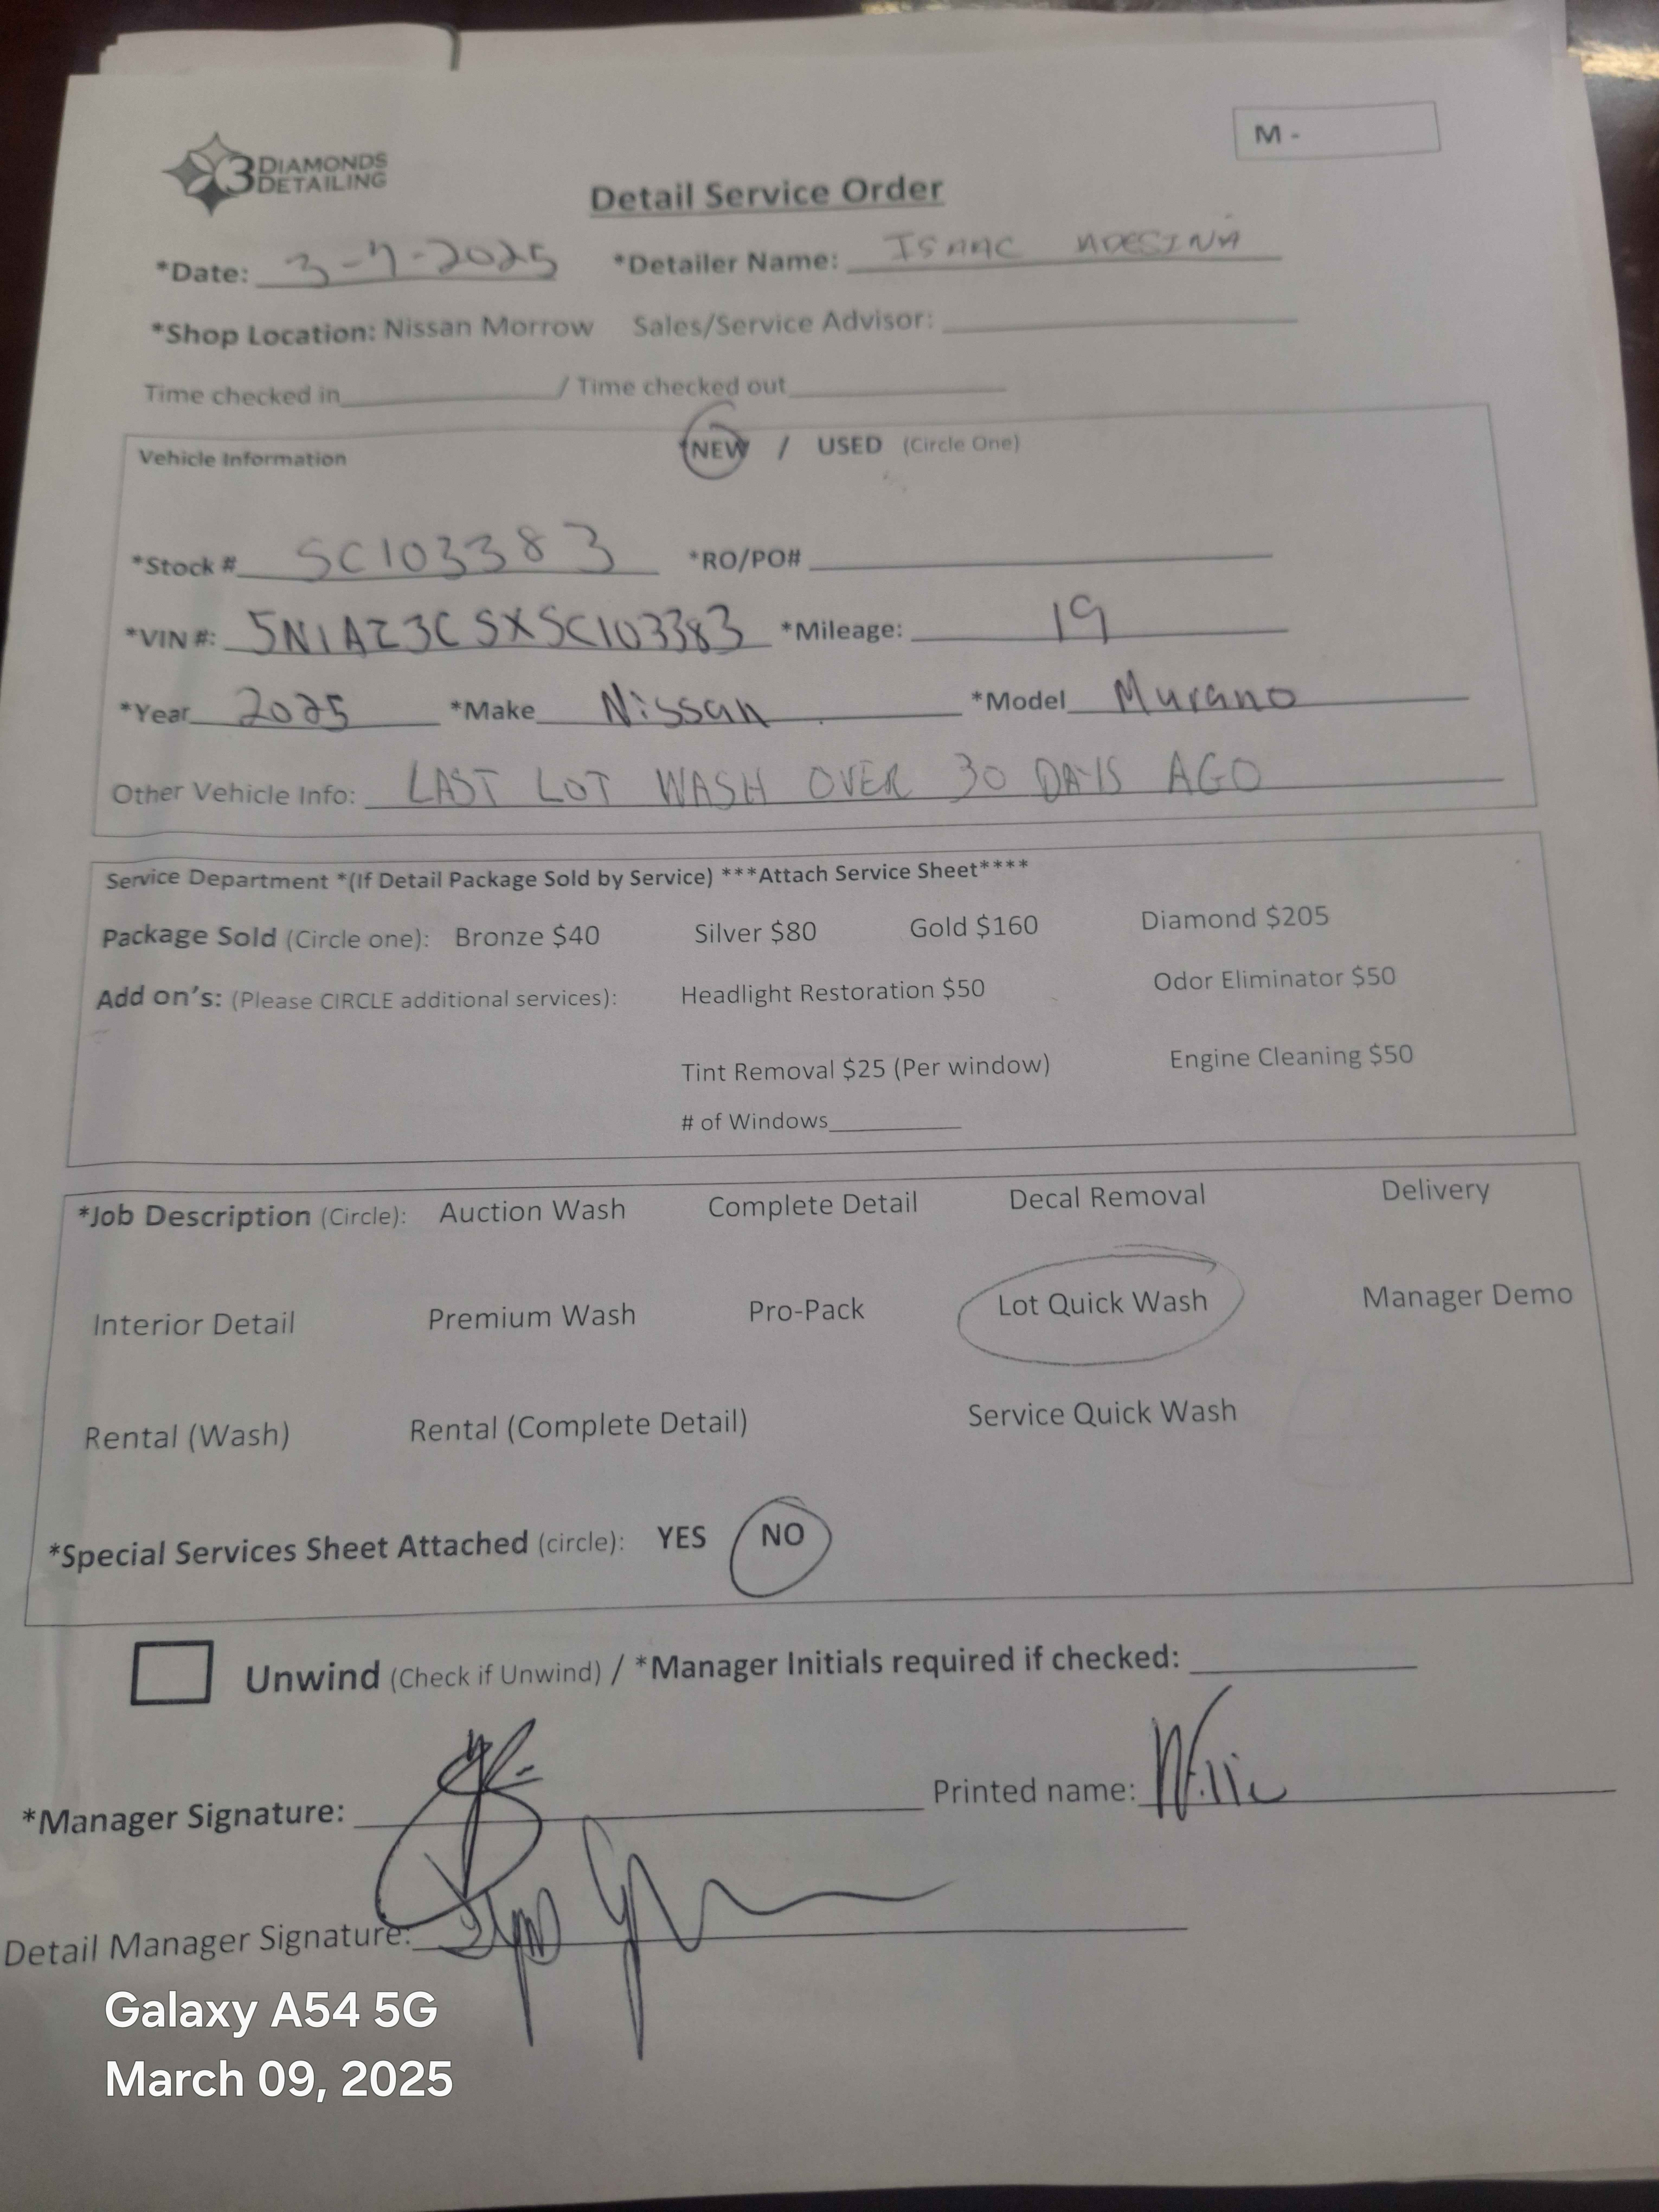 3 DIAMONDS DETAILING
M -
Detail Service Order
*Date: 3-7-2025 *Detailer Name: ISAAC ADESINA
*Shop Location: Nissan Morrow Sales/Service Advisor:
Time checked in / Time checked out
Vehicle Information NEW / USED (Circle One)
*Stock # SC103383 *RO/PO#
*VIN #: 5N1AZ3CSXSC103383 *Mileage: 19
*Year 2025 *Make Nissan *Model Murano
Other Vehicle Info: LAST LOT WASH OVER 30 DAYS AGO
Service Department *(If Detail Package Sold by Service) ***Attach Service Sheet****
Package Sold (Circle one): Bronze $40 Silver $80 Gold $160 Diamond $205
Add on's: (Please CIRCLE additional services): Headlight Restoration $50 Odor Eliminator $50
Tint Removal $25 (Per window) Engine Cleaning $50
# of Windows
*Job Description (Circle): Auction Wash Complete Detail Decal Removal Delivery
Interior Detail Premium Wash Pro-Pack Lot Quick Wash Manager Demo
Rental (Wash) Rental (Complete Detail) Service Quick Wash
*Special Services Sheet Attached (circle): YES NO
Unwind (Check if Unwind) / *Manager Initials required if checked:
*Manager Signature: Printed name: Willie
Detail Manager Signature:
Galaxy A54 5G
March 09, 2025